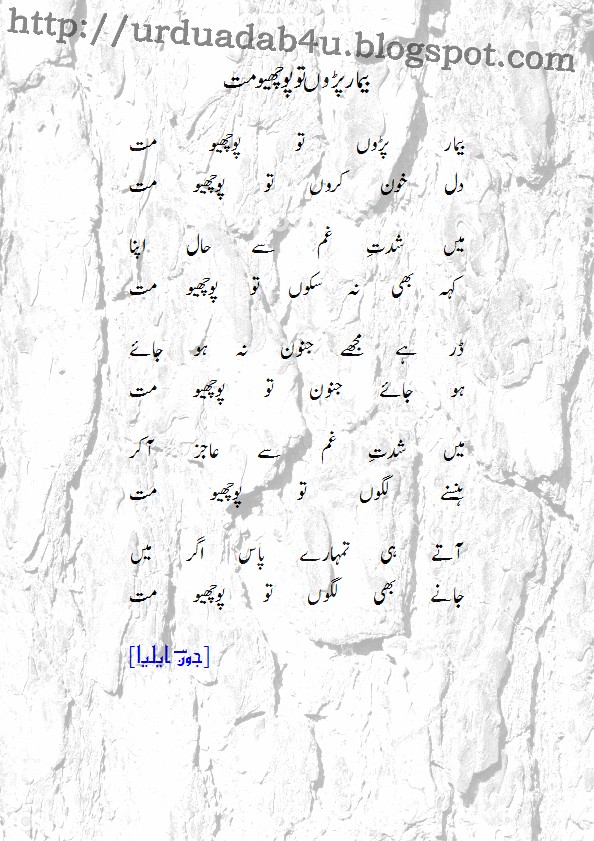 http://urduadab4u.blogspot.com
بیمار پڑوں تو پوچھیو مت
بیمار پڑوں تو پوچھیو مت
دل خون کروں تو پوچھیو مت
میں شدتِ غم سے حال اپنا
کہہ بھی نہ سکوں تو پوچھیو مت
ڈر ہے مجھے جنون نہ ہو جائے
ہو جائے جنون تو پوچھیو مت
میں شدتِ غم سے عاجز آ کر
ہنسنے لگوں تو پوچھیو مت
آتے ہی تمہارے پاس اگر میں
جانے بھی لگوں تو پوچھیو مت
[جونؔ ایلیا]